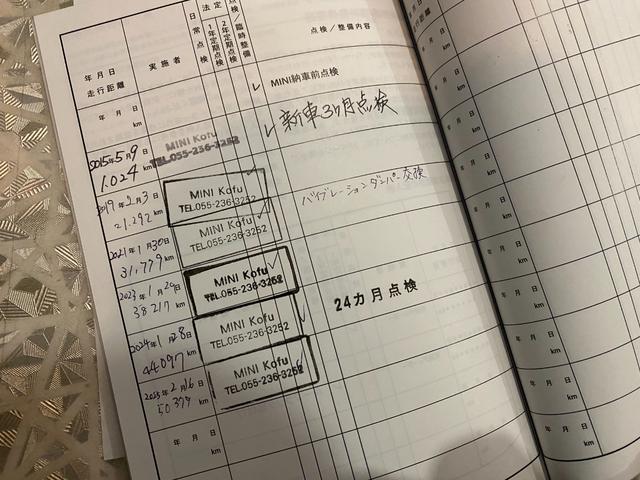 年月日
走行距離
実施者
日常点検
法定点検
1年定期点検
2年定期点検
臨時整備
点検/整備内容
年 月 日
km
MINI納車前点検
2015年5月9日
1,024 km
MINI Kofu
TEL.055-236-3252
新車3ヶ月点検
2019年2月3日
21,292 km
MINI Kofu
TEL.055-236-3252
バイブレーションダンパー交換
2021年1月30日
31,779 km
MINI Kofu
TEL.055-236-3252
2023年1月20日
38217 km
MINI Kofu
TEL.055-236-3252
24カ月点検
2024年1月28日
44097 km
MINI Kofu
TEL.055-236-3252
2025年2月16日
50379 km
MINI Kofu
TEL.055-236-3252
年 月 日
km
年 月 日
km
年 月 日
km
年 月 日
km
年 月 日
km
年 月 日
km
年 月 日
km
年 月 日
km
年 月 日
km
年 月 日
km